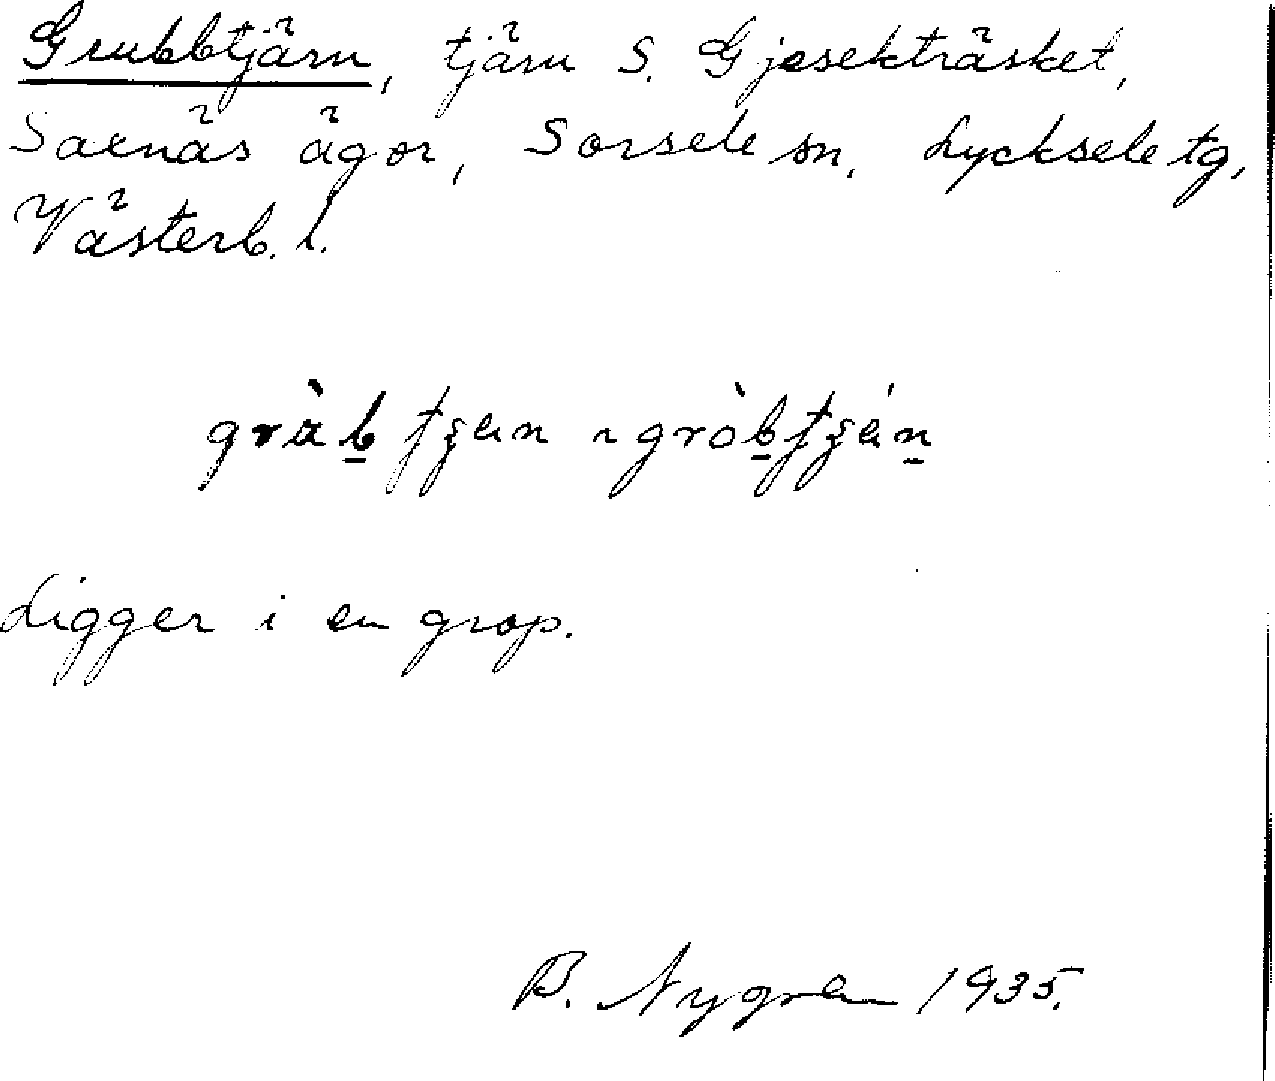 Grubbtjärn, tjärn S. Gjesekträsket,
Saxnäs ägor, Sorsele sn. Lycksele tg,
Västerb. l.
Ligger i en grop.
B. Nygren 1935.